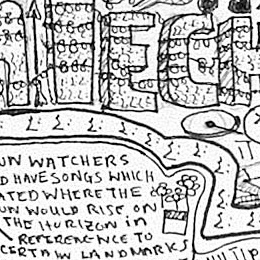 UN WATCHERS
D HAVE SONGS WHICH
ATED WHERE THE
UN WOULD RISE ON
THE HORIZON in
REFERENCE TO
CERTAIN LANDMARKS